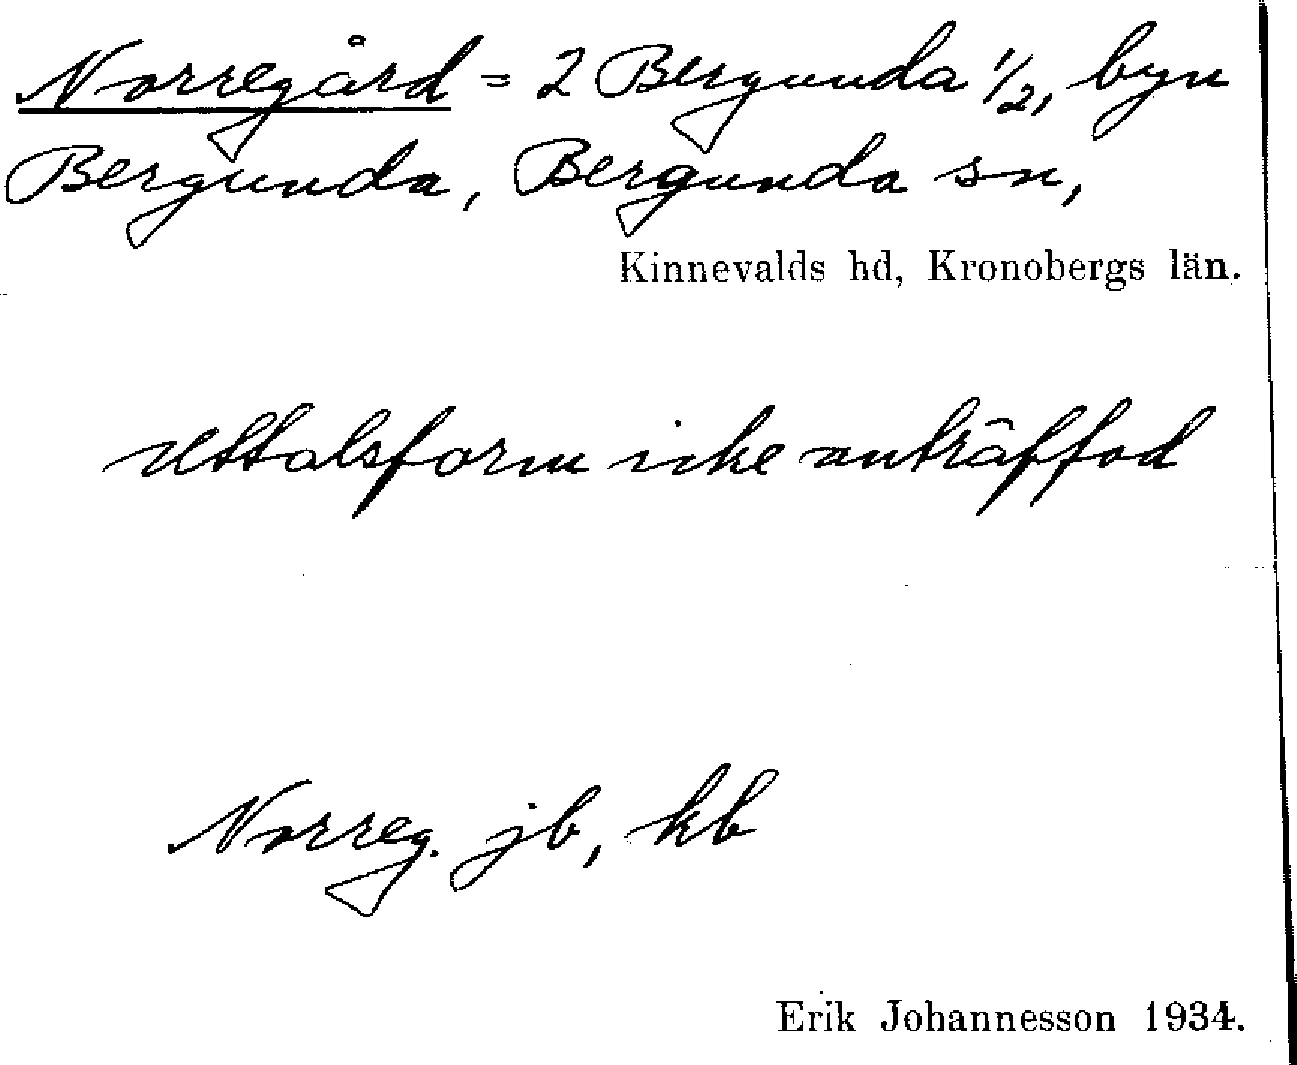 Norregård = 2 Bergunda 1/2, byn
Bergunda, Bergunda sn,
Kinnevalds hd, Kronobergs län.
Uttalsform icke anträffad
Norreg. jb, kb
Erik Johannesson 1934.